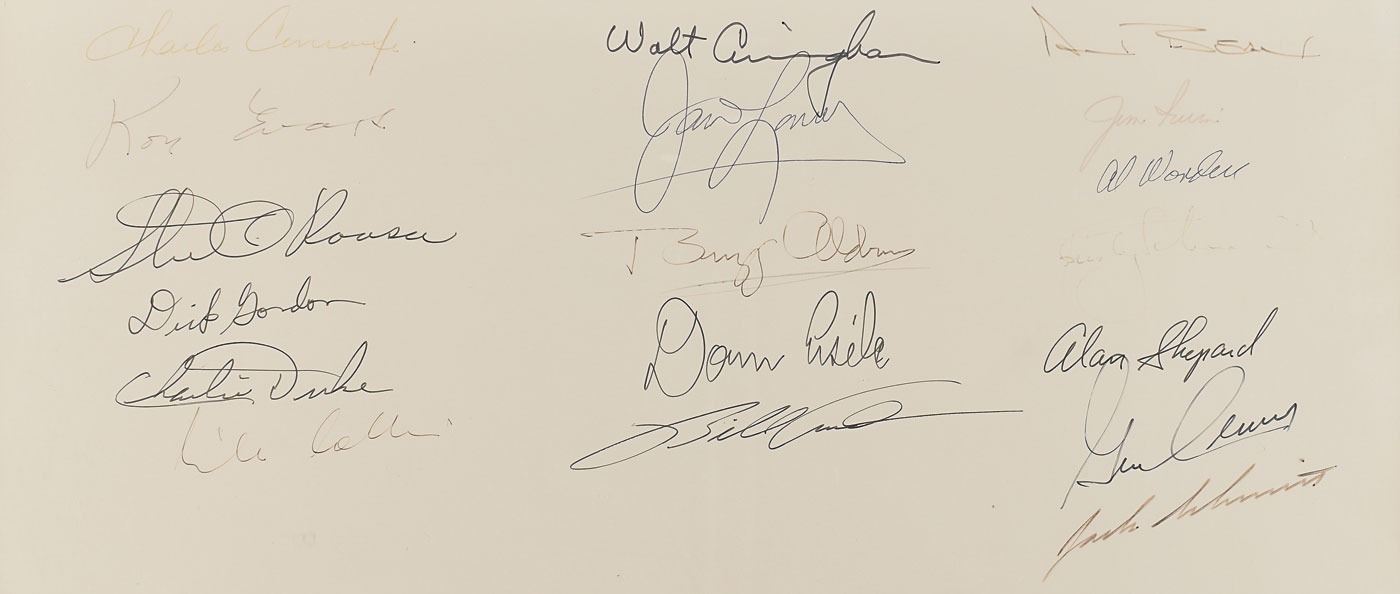 Charles Conrad Jr.
Ron Evans
Stuart Roosa
Dick Gordon
Charlie Duke
Mike Collins
Walt Cunningham
James Lovell
Buzz Aldrin
Donn Eisele
Bill Anders
Al Bean
Jim Irwin
Al Worden
Alan Shepard
Gene Cernan
Jack Schmitt